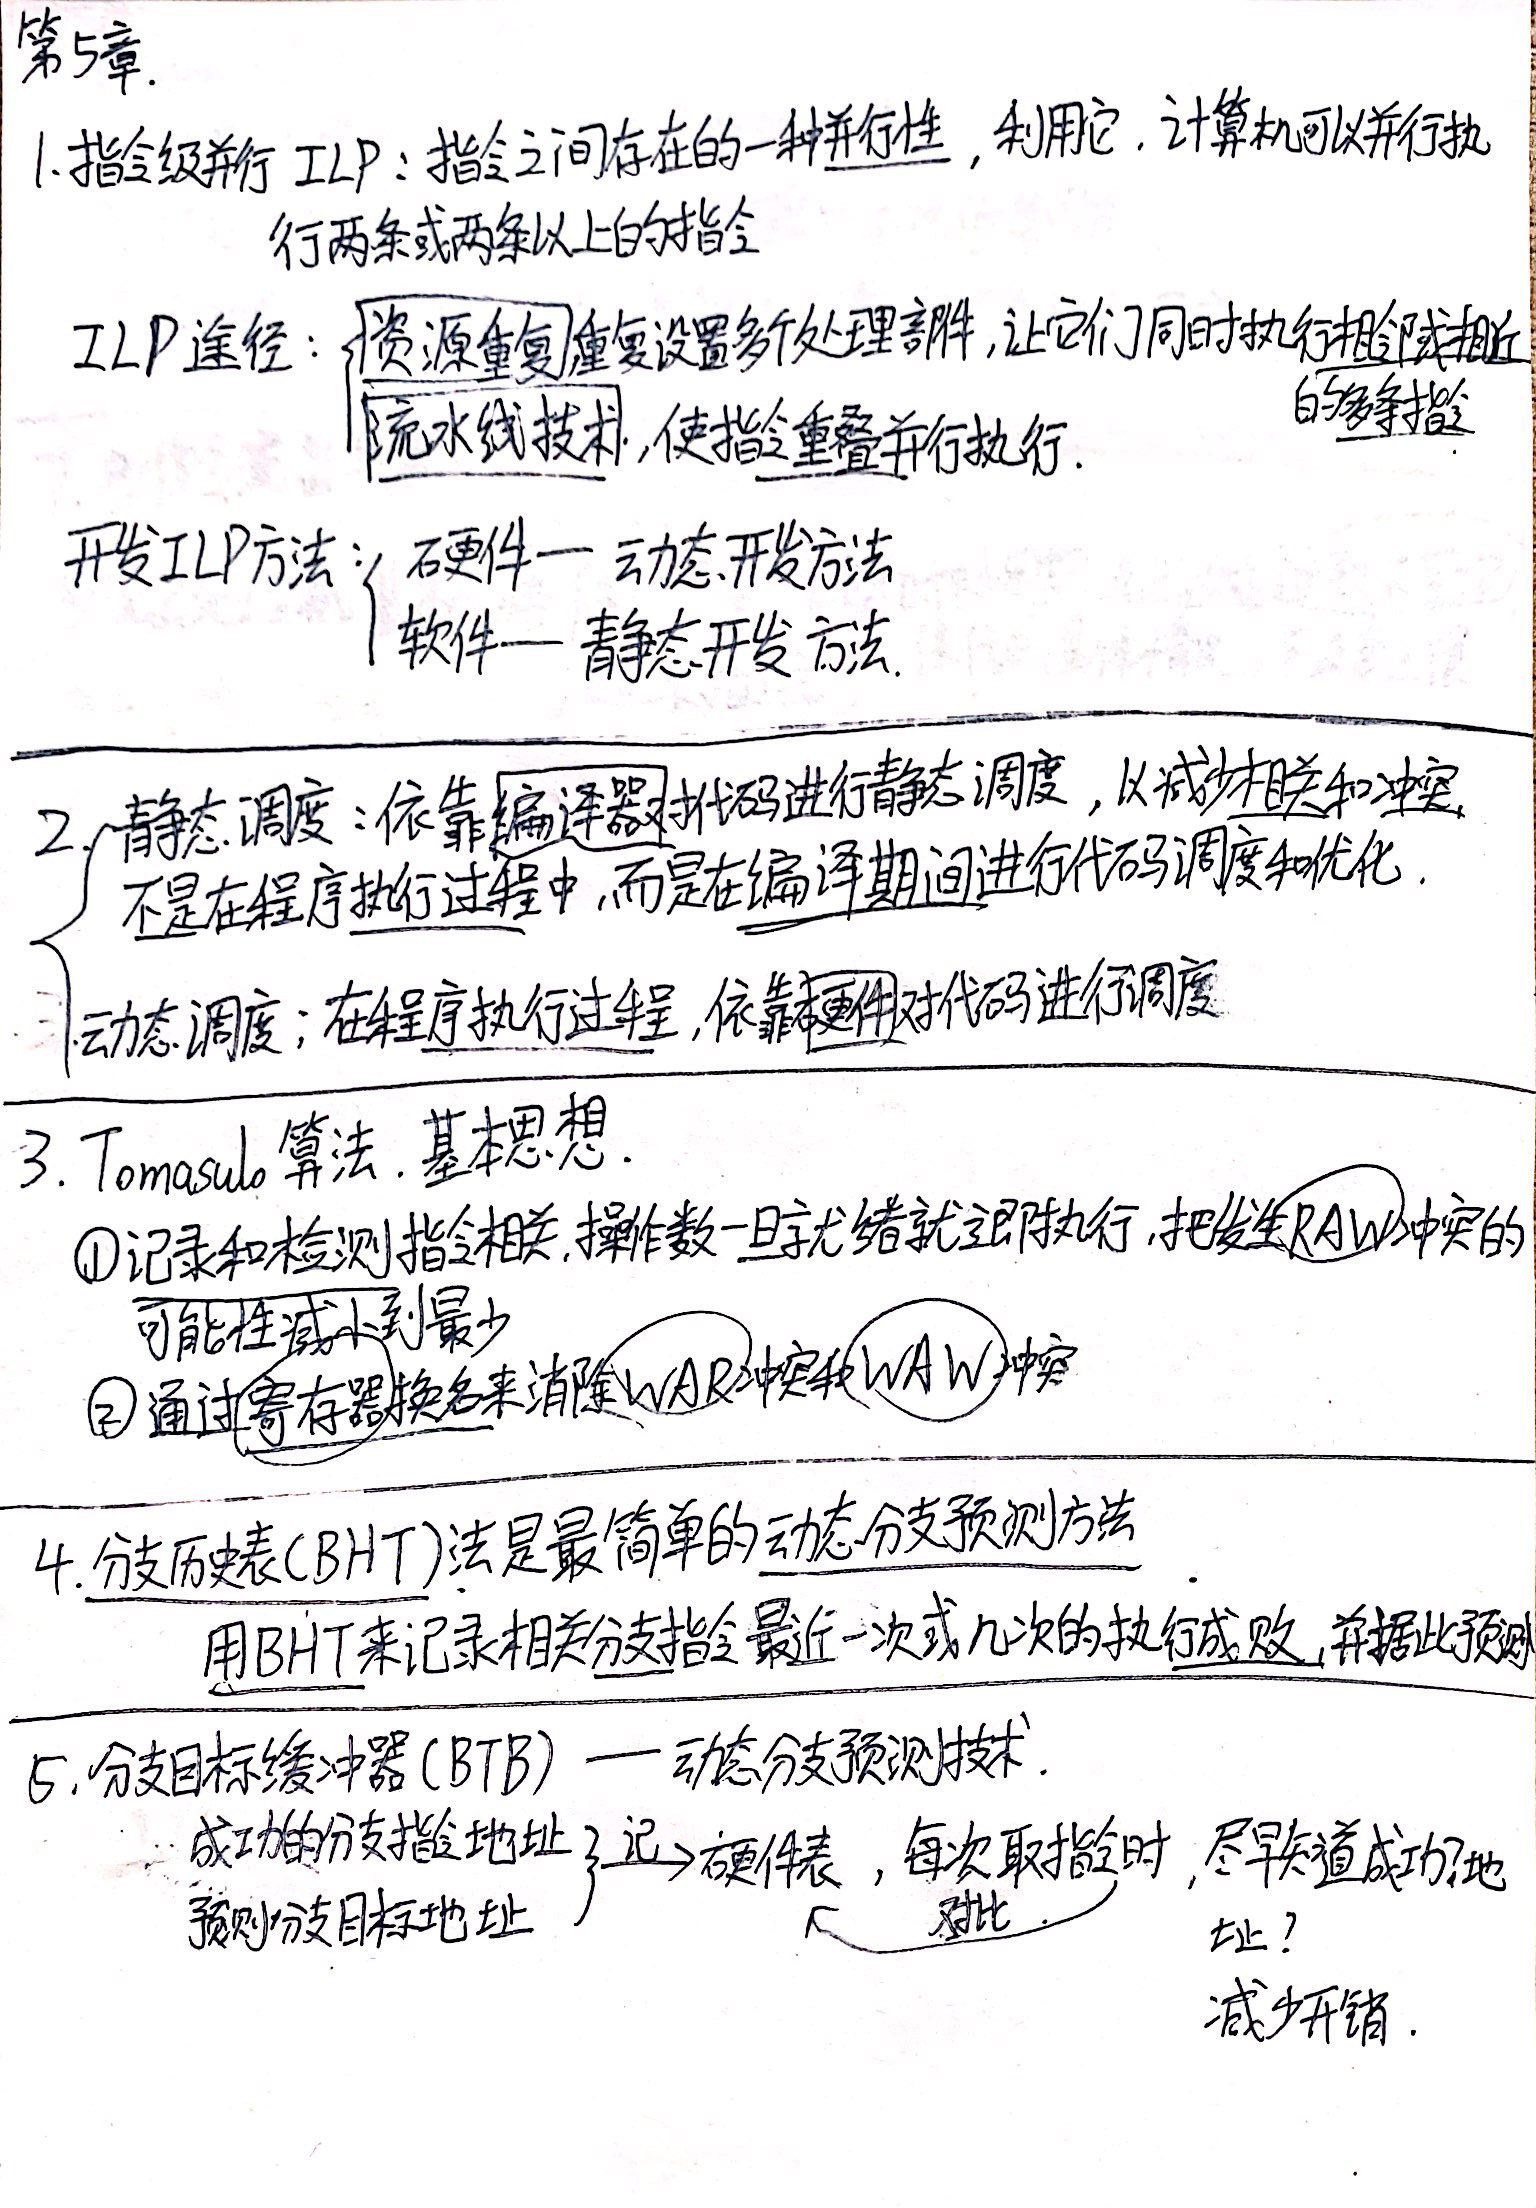 第5章.
1.指令级并行 ILP：指令之间存在的一种并行性，利用它.计算机可以并行执
行两条或两条以上的指令
ILP途径：资源重复,重复设置多个处理部件,让它们同时执行相邻或相近
的多条指令
流水线技术,使指令重叠并行执行.
开发ILP方法：硬件—动态开发方法
软件—静态开发方法.
2.静态调度：依靠编译器对代码进行静态调度，以减少相关和冲突.
不是在程序执行过程中,而是在编译期间进行代码调度和优化.
动态调度；在程序执行过程,依靠硬件对代码进行调度
3. Tomasulo算法.基本思想.
①记录和检测指令相关,操作数一旦就绪就立即执行,把发生RAW冲突的
可能性减小到最少
②通过寄存器换名来消除WAR冲突和WAW冲突
4.分支历史表(BHT)法是最简单的动态分支预测方法.
用BHT来记录相关分支指令最近一次或几次的执行成败,并据此预测
5.分支目标缓冲器(BTB)—动态分支预测技术.
成功的分支指令地址 记→硬件表，每次取指令时,尽早知道成功?地
预测分支目标地址 对比 址?
减少开销.